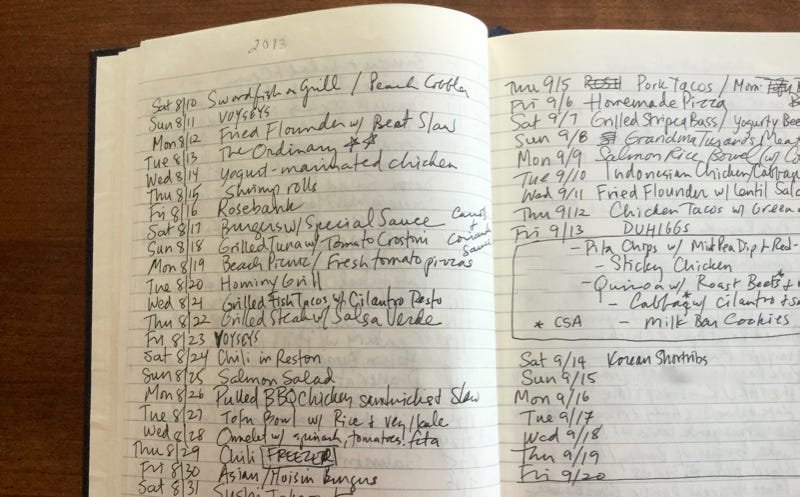 2013
Sat 8/10 Swordfish on Grill / Peach Cobbler
Sun 8/11 VOYSEYS
Mon 8/12 Fried Flounder w/ Beet Slaw
Tue 8/13 The Ordinary **
Wed 8/14 yogurt-marinated chicken
Thu 8/15 Shrimp rolls
Fri 8/16 Rosebank
Sat 8/17 Burgers w/ Special Sauce
Sun 8/18 Grilled Tuna w/ Tomato Crostini
Mon 8/19 Beach Picnic / Fresh tomato pizzas
Tue 8/20 Hominy Grill
Wed 8/21 Grilled Fish Tacos w/ Cilantro Pesto
Thu 8/22 Grilled Steak w/ Salsa Verde
Fri 8/23 VOYSEYS
Sat 8/24 Chili in Reston
Sun 8/25 Salmon Salad
Mon 8/26 Pulled BBQ Chicken sandwiches & Slaw
Tue 8/27 Tofu Bowl w/ Rice & veg/kale
Wed 8/28 Omelet w/ spinach, tomatoes, feta
Thu 8/29 Chili FREEZER
Fri 8/30 Asian/Hoisin Burgers
Sat 8/31 Sushi
Thu 9/5 Pork Tacos / Mom
Fri 9/6 Homemade Pizza
Sat 9/7 Grilled Striped Bass / yogurty Bee
Sun 9/8 Grandma Meat
Mon 9/9 Salmon Rice Bowl (w/ Co
Tue 9/10 Indonesian Chicken/Cabbag
Wed 9/11 Fried Flounder w/ Lentil Sala
Thu 9/12 Chicken Tacos w/ Green
Fri 9/13 DUHIGGS
- Pita Chips w/ Mint Pea Dip & Red-
- Sticky Chicken
- Quinoa w/ Roast Beets* &
- Cabbage* w/ Cilantro &
* CSA - Milk Bar Cookies
Sat 9/14 Korean Shortribs
Sun 9/15
Mon 9/16
Tue 9/17
Wed 9/18
Thu 9/19
Fri 9/20